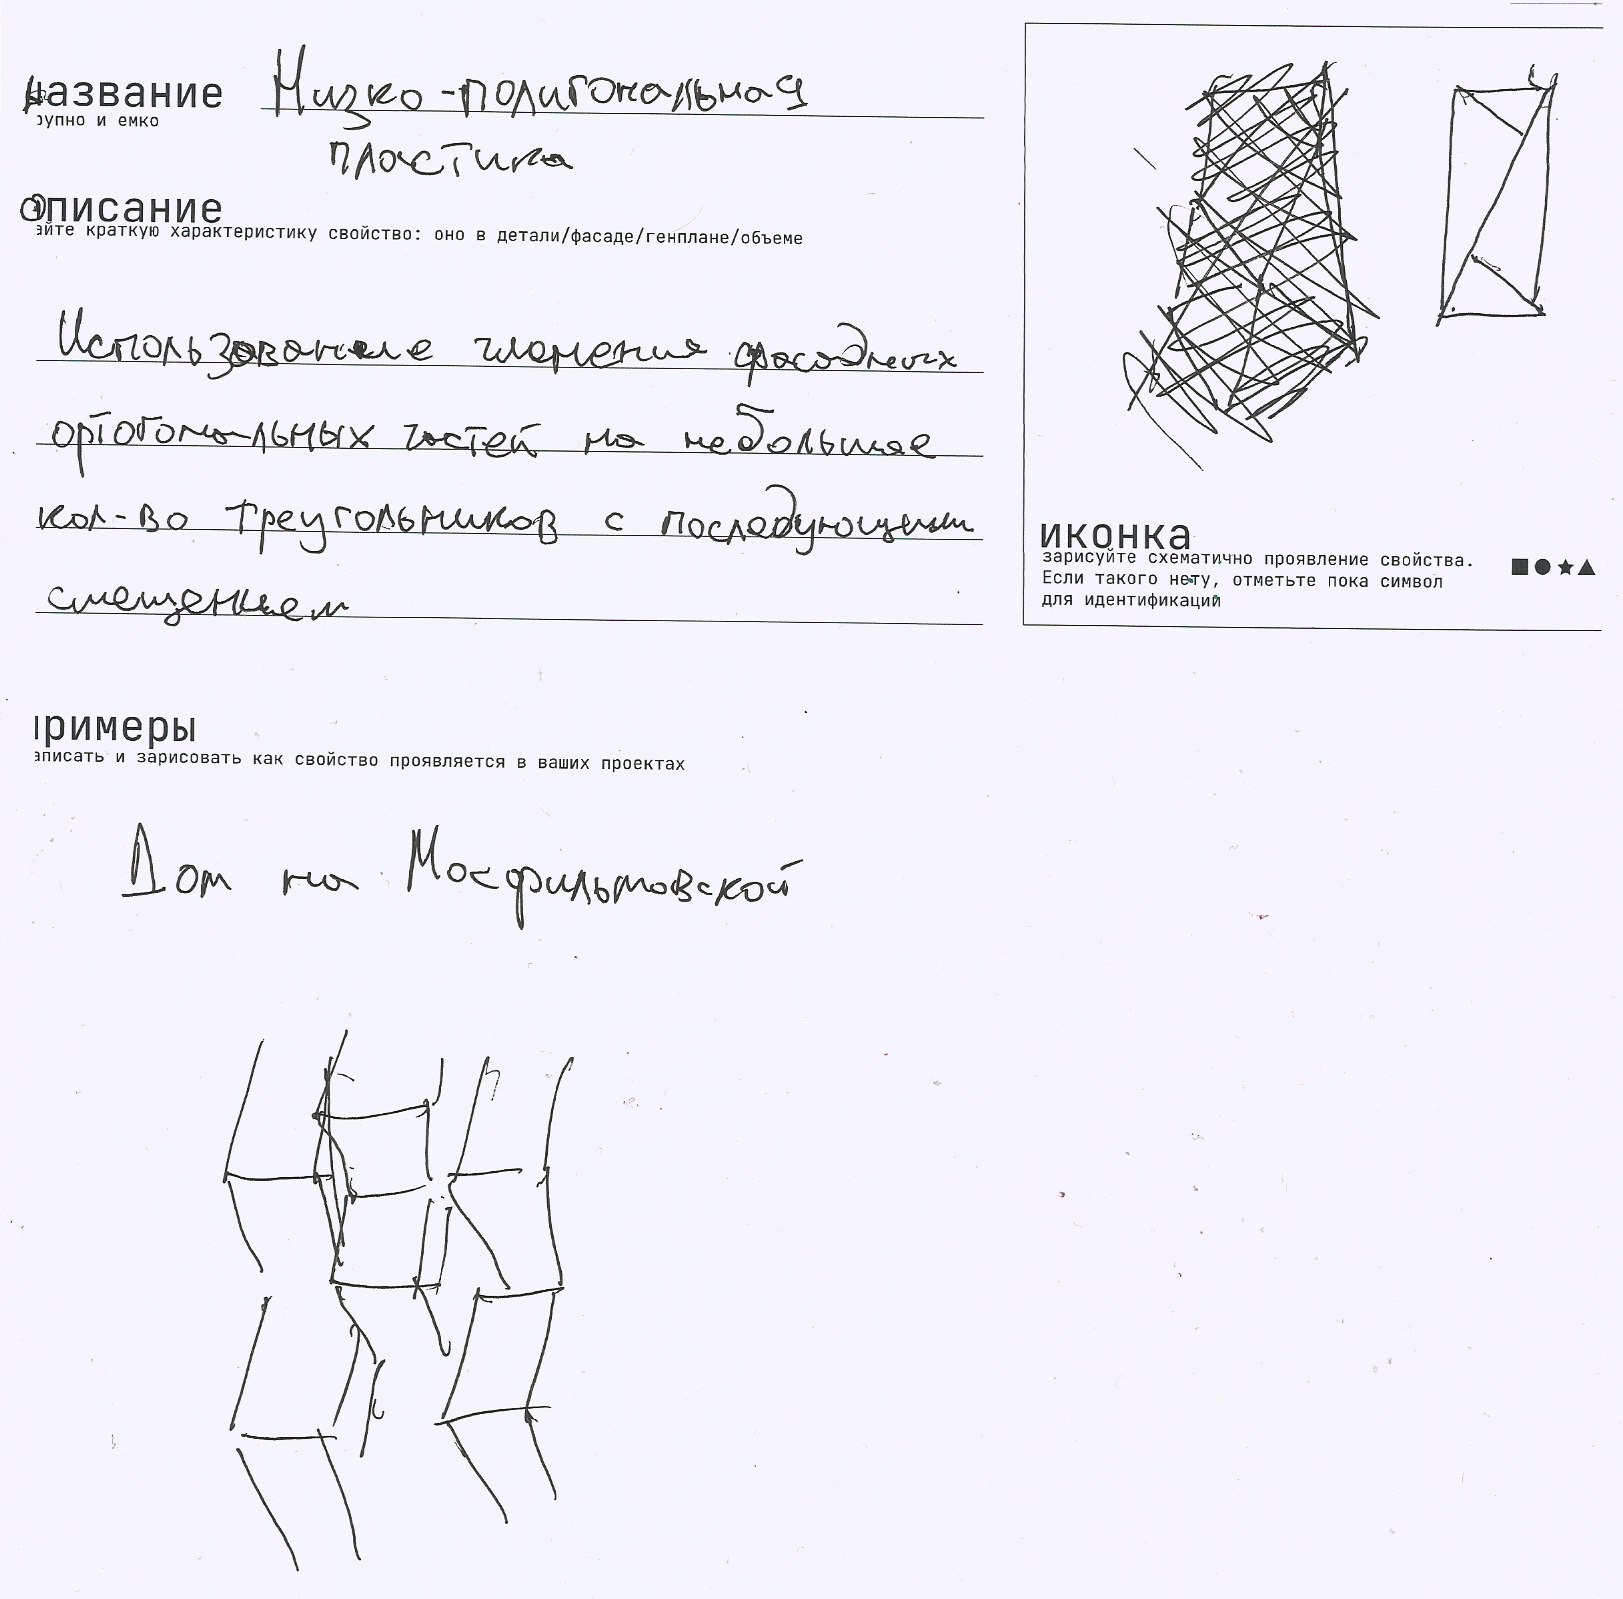 название Низко-полигональная
рупно и емко
пластика
описание
айте краткую характеристику свойство: оно в детали/фасаде/генплане/объеме
Использование членения фасадных
ортогональных частей на небольшое
кол-во треугольников с последующим
смещением
иконка
зарисуйте схематично проявление свойства.
Если такого нету, отметьте пока символ
для идентификаций
примеры
аписать и зарисовать как свойство проявляется в ваших проектах
Дом на Мосфильмовской